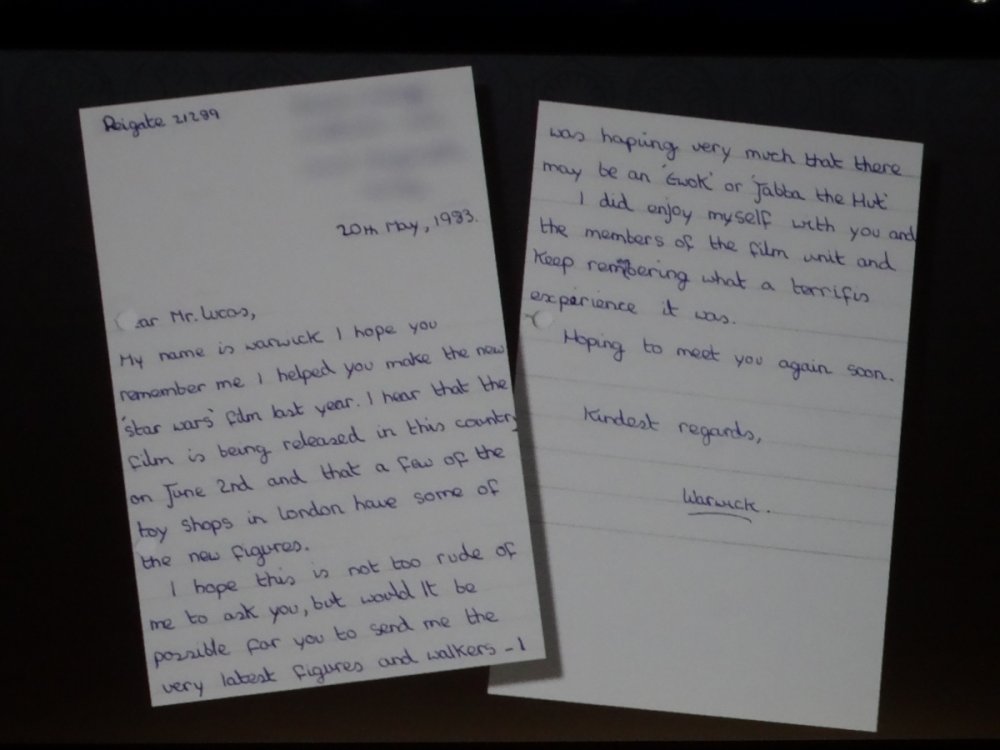 Reigate 21299
20th May, 1983.
ear Mr. Lucas,
My name is warwick I hope you
remember me I helped you make the new
'star wars' film last year. I hear that the
film is being released in this country
on June 2nd and that a few of the
toy shops in london have some of
the new figures.
I hope this is not too rude of
me to ask you, but would It be
possible for you to send me the
very latest figures and walkers - I
was hapiing very much that there
may be an 'Ewok' or 'Jabba the Hut'
I did enjoy myself with you and
the members of the film unit and
Keep rembering what a terrific
experience it was.
Hoping to meet you again soon.
Kindest regards,
Warwick.